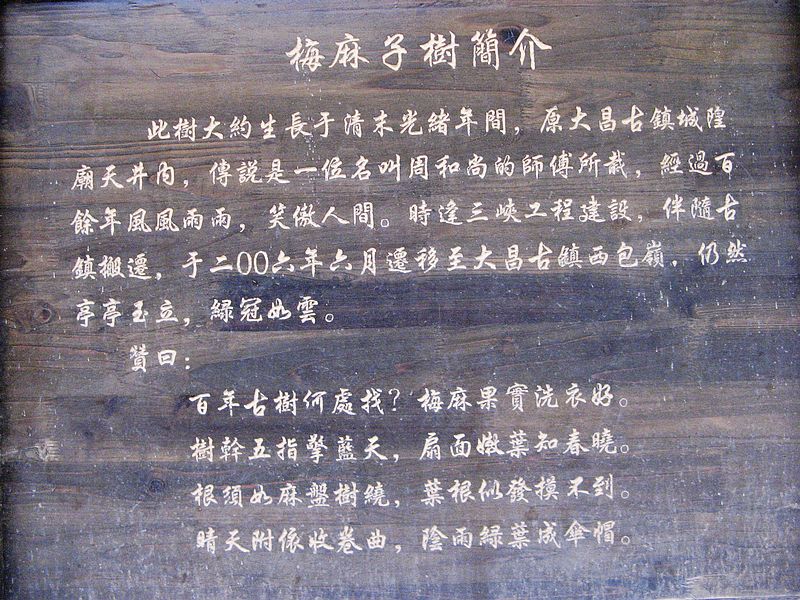 梅麻子樹簡介
此樹大約生長于清末光緒年間，原大昌古鎮城隍
廟天井内，傳説是一位名叫周和尚的師傅所栽，經過百
餘年風風雨雨，笑傲人間。時逢三峽工程建設，伴隨古
鎮搬遷，于二00六年六月遷移至大昌古鎮西包嶺，仍然
亭亭玉立，緑冠如雲。
贊曰：
百年古樹何處找？梅麻果實洗衣好。
樹幹五指擎藍天，扇面嫩葉知春曉。
根須如麻盤樹繞，葉根似發摸不到。
晴天附依收卷曲，陰雨緑葉成傘帽。